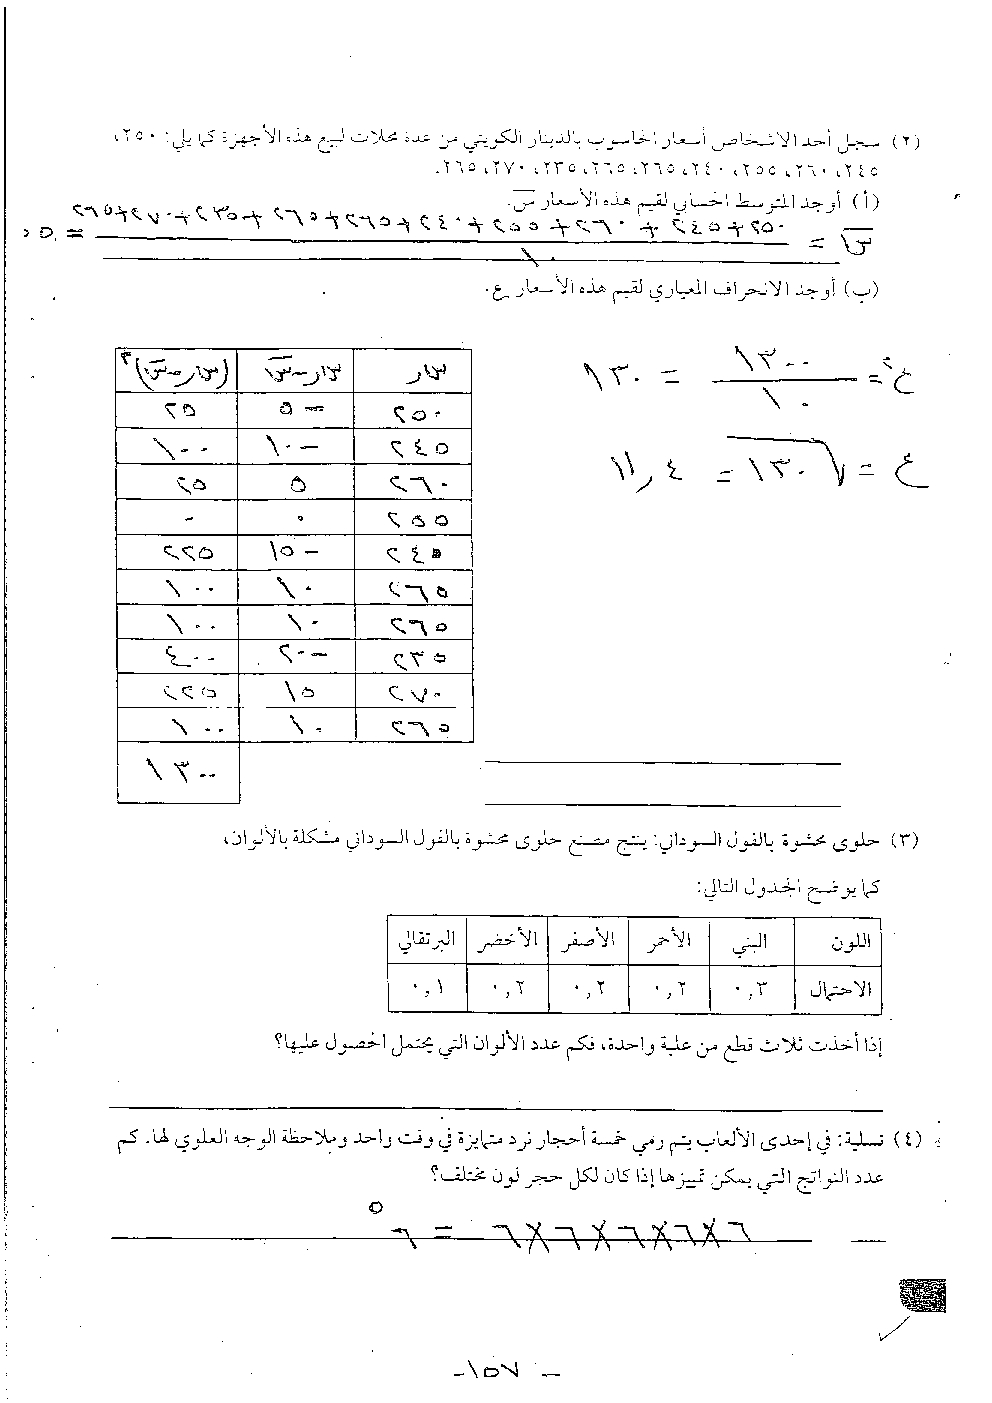 (٢) سجل أحد الأشخاص أسعار الحاسوب بالدينار الكويتي من عدة محلات لبيع هذه الأجهزة كما يلي: ٢٥٠،
٢٤٥، ٢٦٠، ٢٥٥، ٢٤٠، ٢٦٥، ٢٦٥، ٢٣٥، ٢٧٠، ٢٦٥.
(أ) أوجد المتوسط الحسابي لقيم هذه الأسعار س̄.
س̄ = ٢٥٠+٢٤٥+٢٦٠+٢٥٥+٢٤٠+٢٦٥+٢٦٥+٢٣٥+٢٧٠+٢٦٥ =
١٠
(ب) أوجد الانحراف المعياري لقيم هذه الأسعار ع.
ع٢ = ١٣٠٠ / ١٠ = ١٣٠
ع = √١٣٠ = ١١,٤
سر سر-س̄ (سر-س̄)٢
٢٥٠ -٥ ٢٥
٢٤٥ -١٠ ١٠٠
٢٦٠ ٥ ٢٥
٢٥٥ ٠ ٠
٢٤٥ -١٥ ٢٢٥
٢٦٥ ١٠ ١٠٠
٢٦٥ ١٠ ١٠٠
٢٣٥ -٢٠ ٤٠٠
٢٧٠ ١٥ ٢٢٥
٢٦٥ ١٠ ١٠٠
١٣٠٠
(٣) حلوى محشوة بالفول السوداني: ينتج مصنع حلوى محشوة بالفول السوداني مشكلة بالألوان،
كما يوضح الجدول التالي:
اللون البني الأحمر الأصفر الأخضر البرتقالي
الاحتمال ٠,٣ ٠,٢ ٠,٢ ٠,٢ ٠,١
إذا أخذت ثلاث قطع من علبة واحدة، فكم عدد الألوان التي يحتمل الحصول عليها؟
(٤) تسلية: في إحدى الألعاب يتم رمي خمسة أحجار نرد متمايزة في وقت واحد وملاحظة الوجه العلوي لها. كم
عدد النواتج التي يمكن تمييزها إذا كان لكل حجر لون مختلف؟
٦×٦×٦×٦×٦ = ٦٥
-١٥٧-